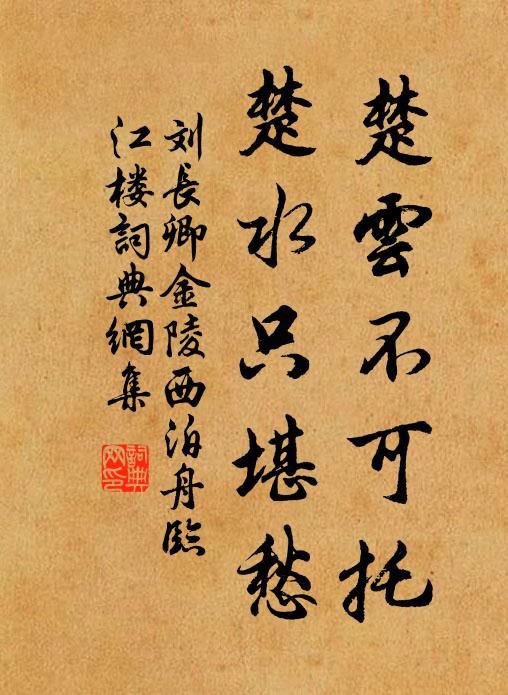 楚雲不可托
楚水只堪愁
刘長卿金陵西泊舟臨
江楼詞典網集
詞典
网印